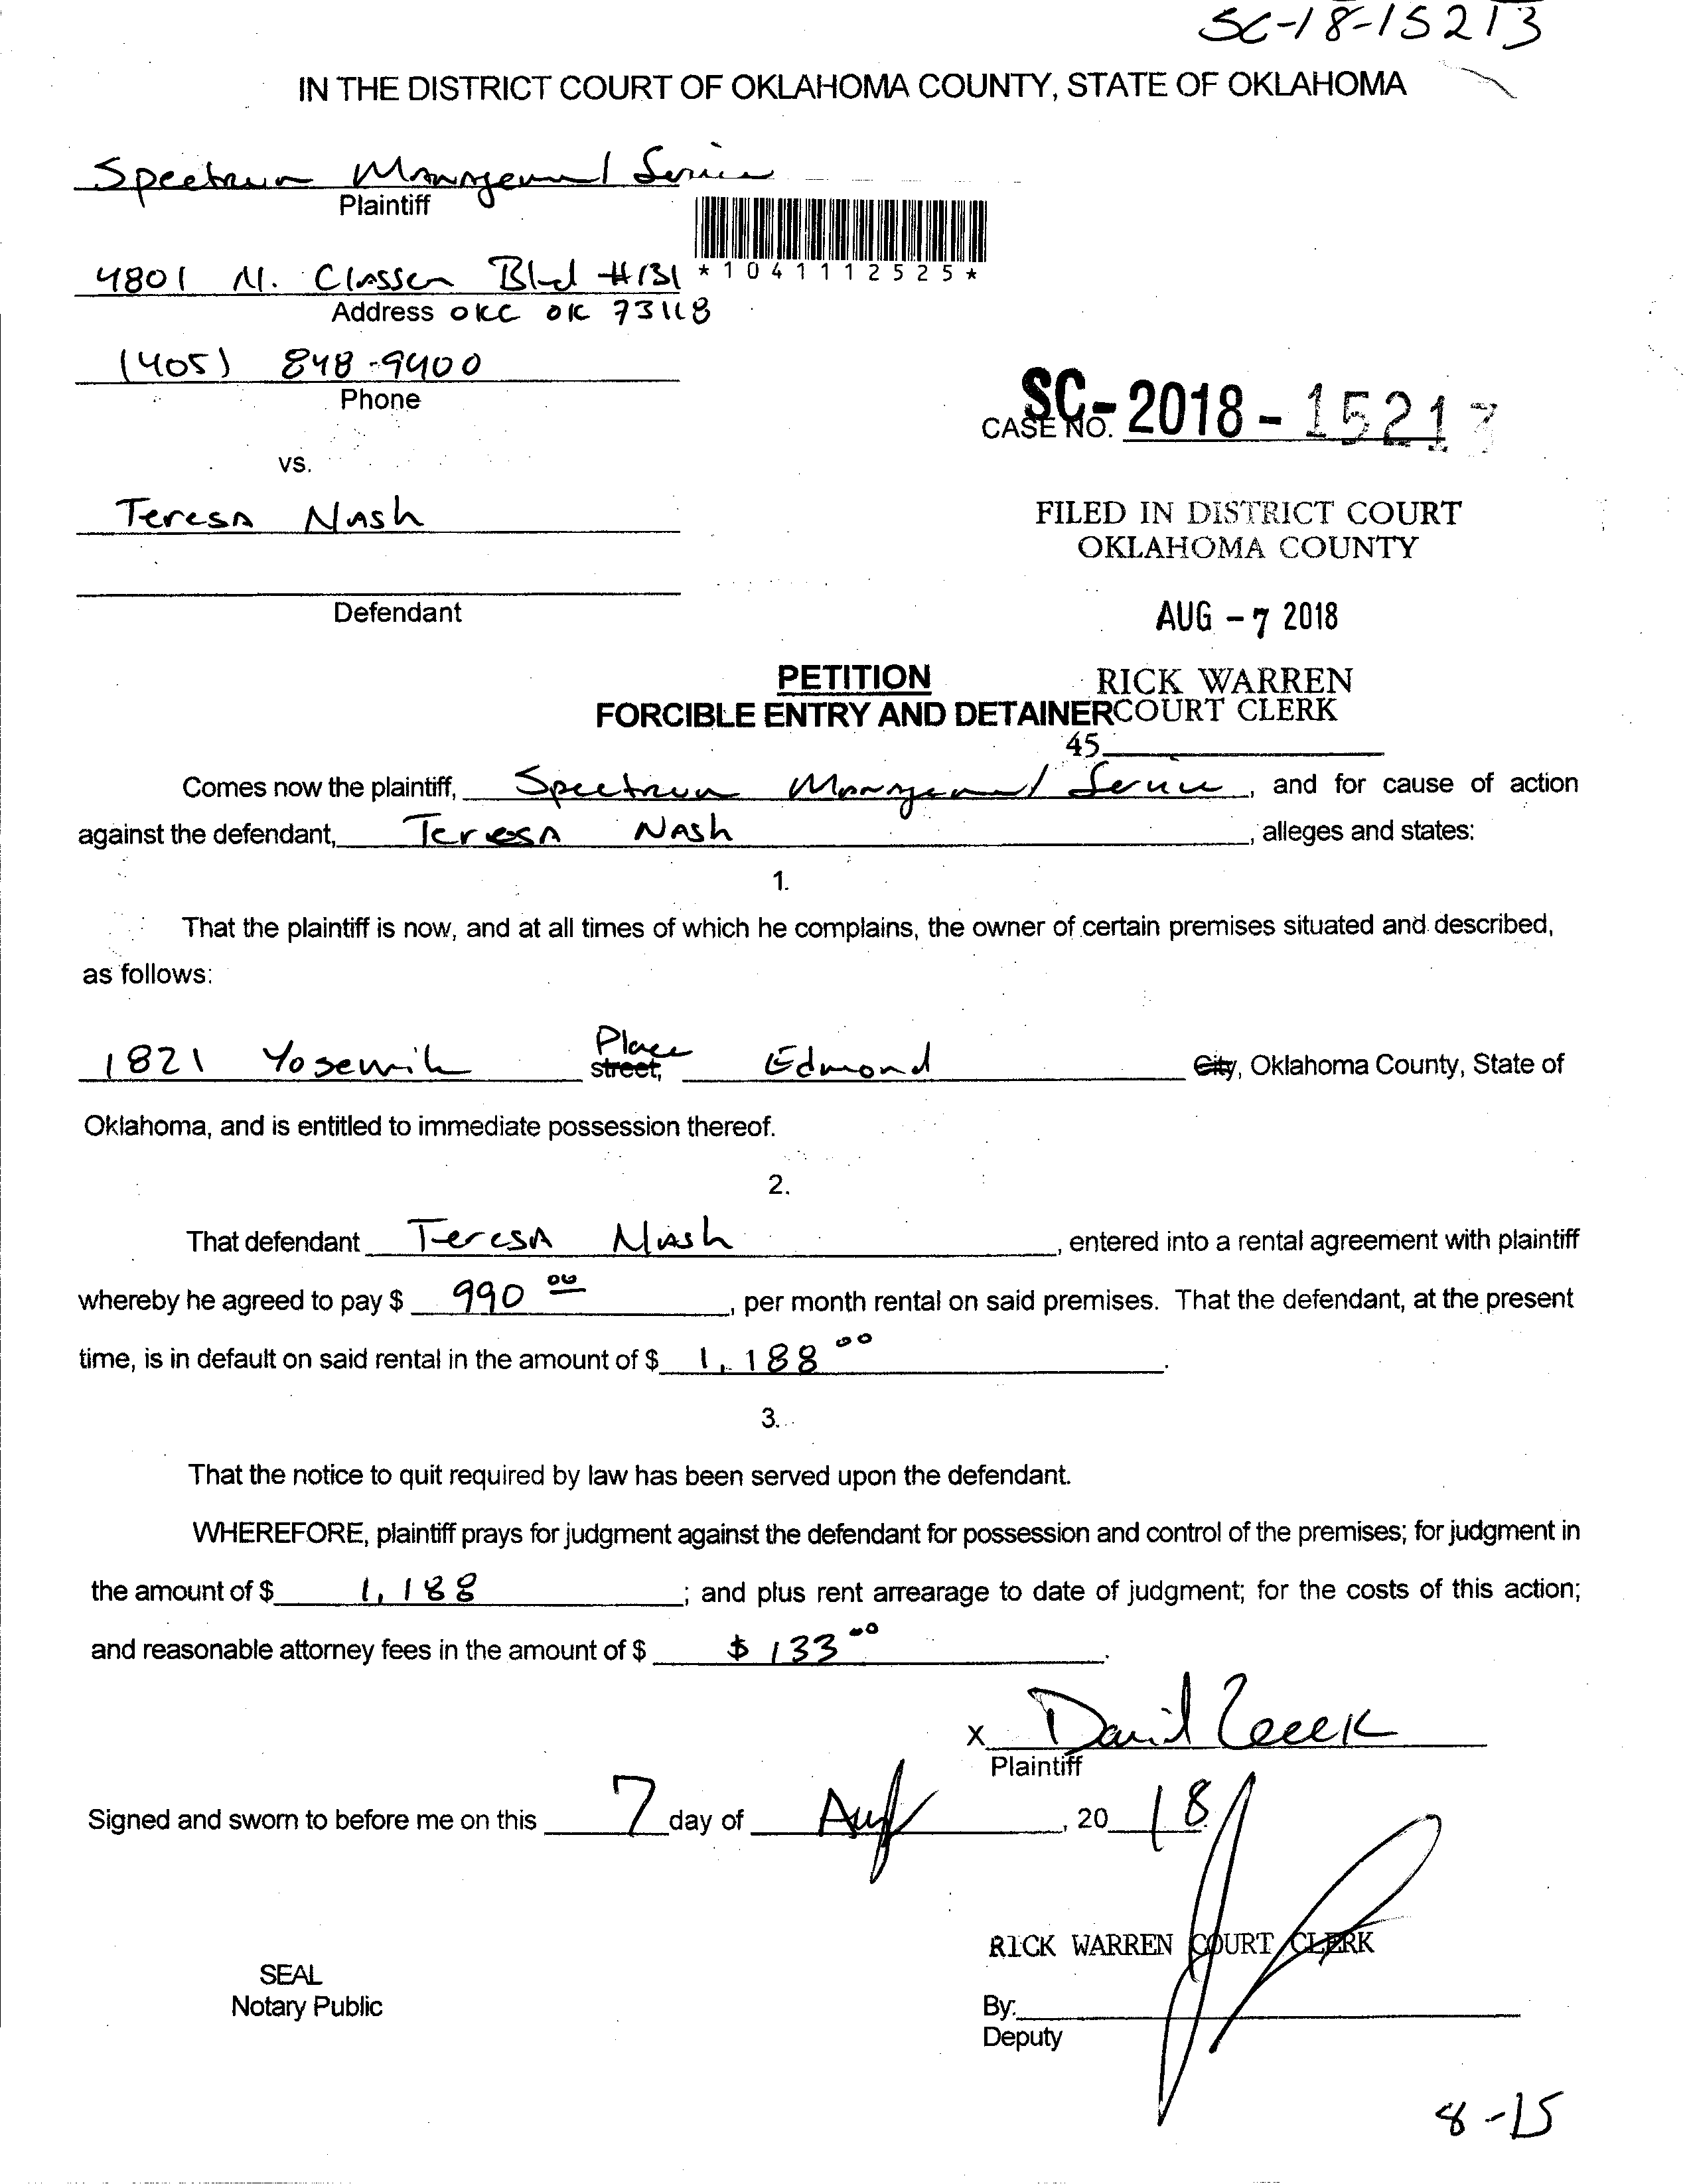 SC-18-15213
IN THE DISTRICT COURT OF OKLAHOMA COUNTY, STATE OF OKLAHOMA
Spectrum Management Service
Plaintiff
*1041112525*
4801 N. Classen Blvd #131
Address OKC OK 73118
(405) 848-9400
Phone
SC-2018-15213
CASE NO.
vs.
Teresa Nash
FILED IN DISTRICT COURT
OKLAHOMA COUNTY
Defendant
AUG - 7 2018
PETITION
RICK WARREN
FORCIBLE ENTRY AND DETAINER COURT CLERK
45
Comes now the plaintiff, Spectrum Management Service, and for cause of action
against the defendant, Teresa Nash, alleges and states:
1.
That the plaintiff is now, and at all times of which he complains, the owner of certain premises situated and described,
as follows:
1821 Yosemite Place street, Edmond City, Oklahoma County, State of
Oklahoma, and is entitled to immediate possession thereof.
2.
That defendant Teresa Nash, entered into a rental agreement with plaintiff
whereby he agreed to pay $ 990 00, per month rental on said premises. That the defendant, at the present
time, is in default on said rental in the amount of $ 1,188 00.
3.
That the notice to quit required by law has been served upon the defendant.
WHEREFORE, plaintiff prays for judgment against the defendant for possession and control of the premises; for judgment in
the amount of $ 1,188; and plus rent arrearage to date of judgment; for the costs of this action;
and reasonable attorney fees in the amount of $ $ 133 00.
X David
Plaintiff
Signed and sworn to before me on this 7 day of Aug, 20 18.
RICK WARREN COURT CLERK
SEAL
Notary Public
By:
Deputy
8-15